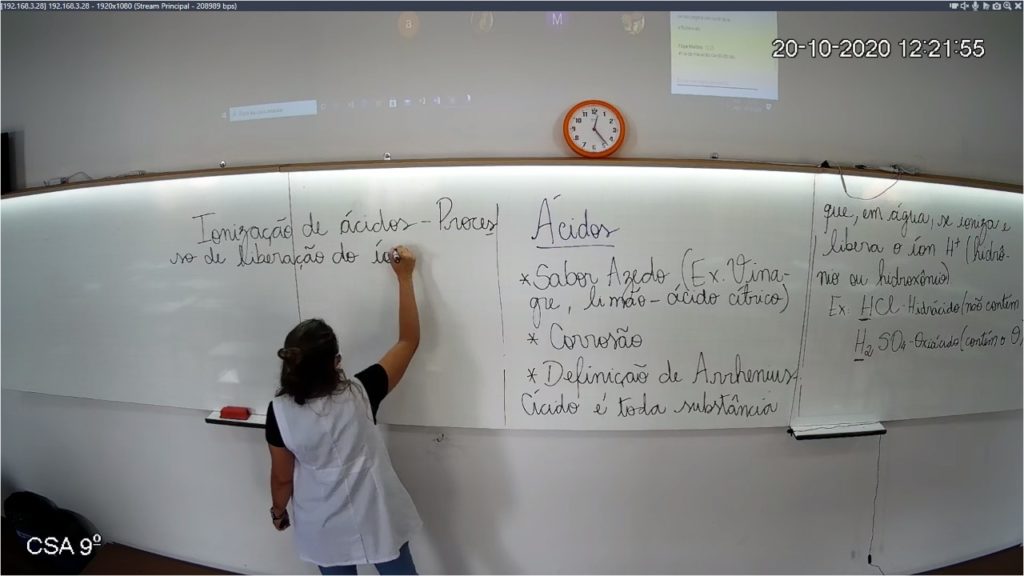 [192.168.3.28] 192.168.3.28 - 1920x1080 (Stream Principal - 208989 bps)
20-10-2020 12:21:55
Ionização de ácidos - Proces
so de liberação do ío
Ácidos
* Sabor Azedo (Ex. Vina-
gre, limão - ácido cítrico)
* Corrosão
* Definição de Arrhenius
Ácido é toda substância
que, em água, se ioniza e
libera o íon H⁺ (hidrô-
nio ou hidroxônio)
Ex: HCl - Hidrácido (não contém
H₂SO₄ - Oxiácido (contém o O
CSA 9º